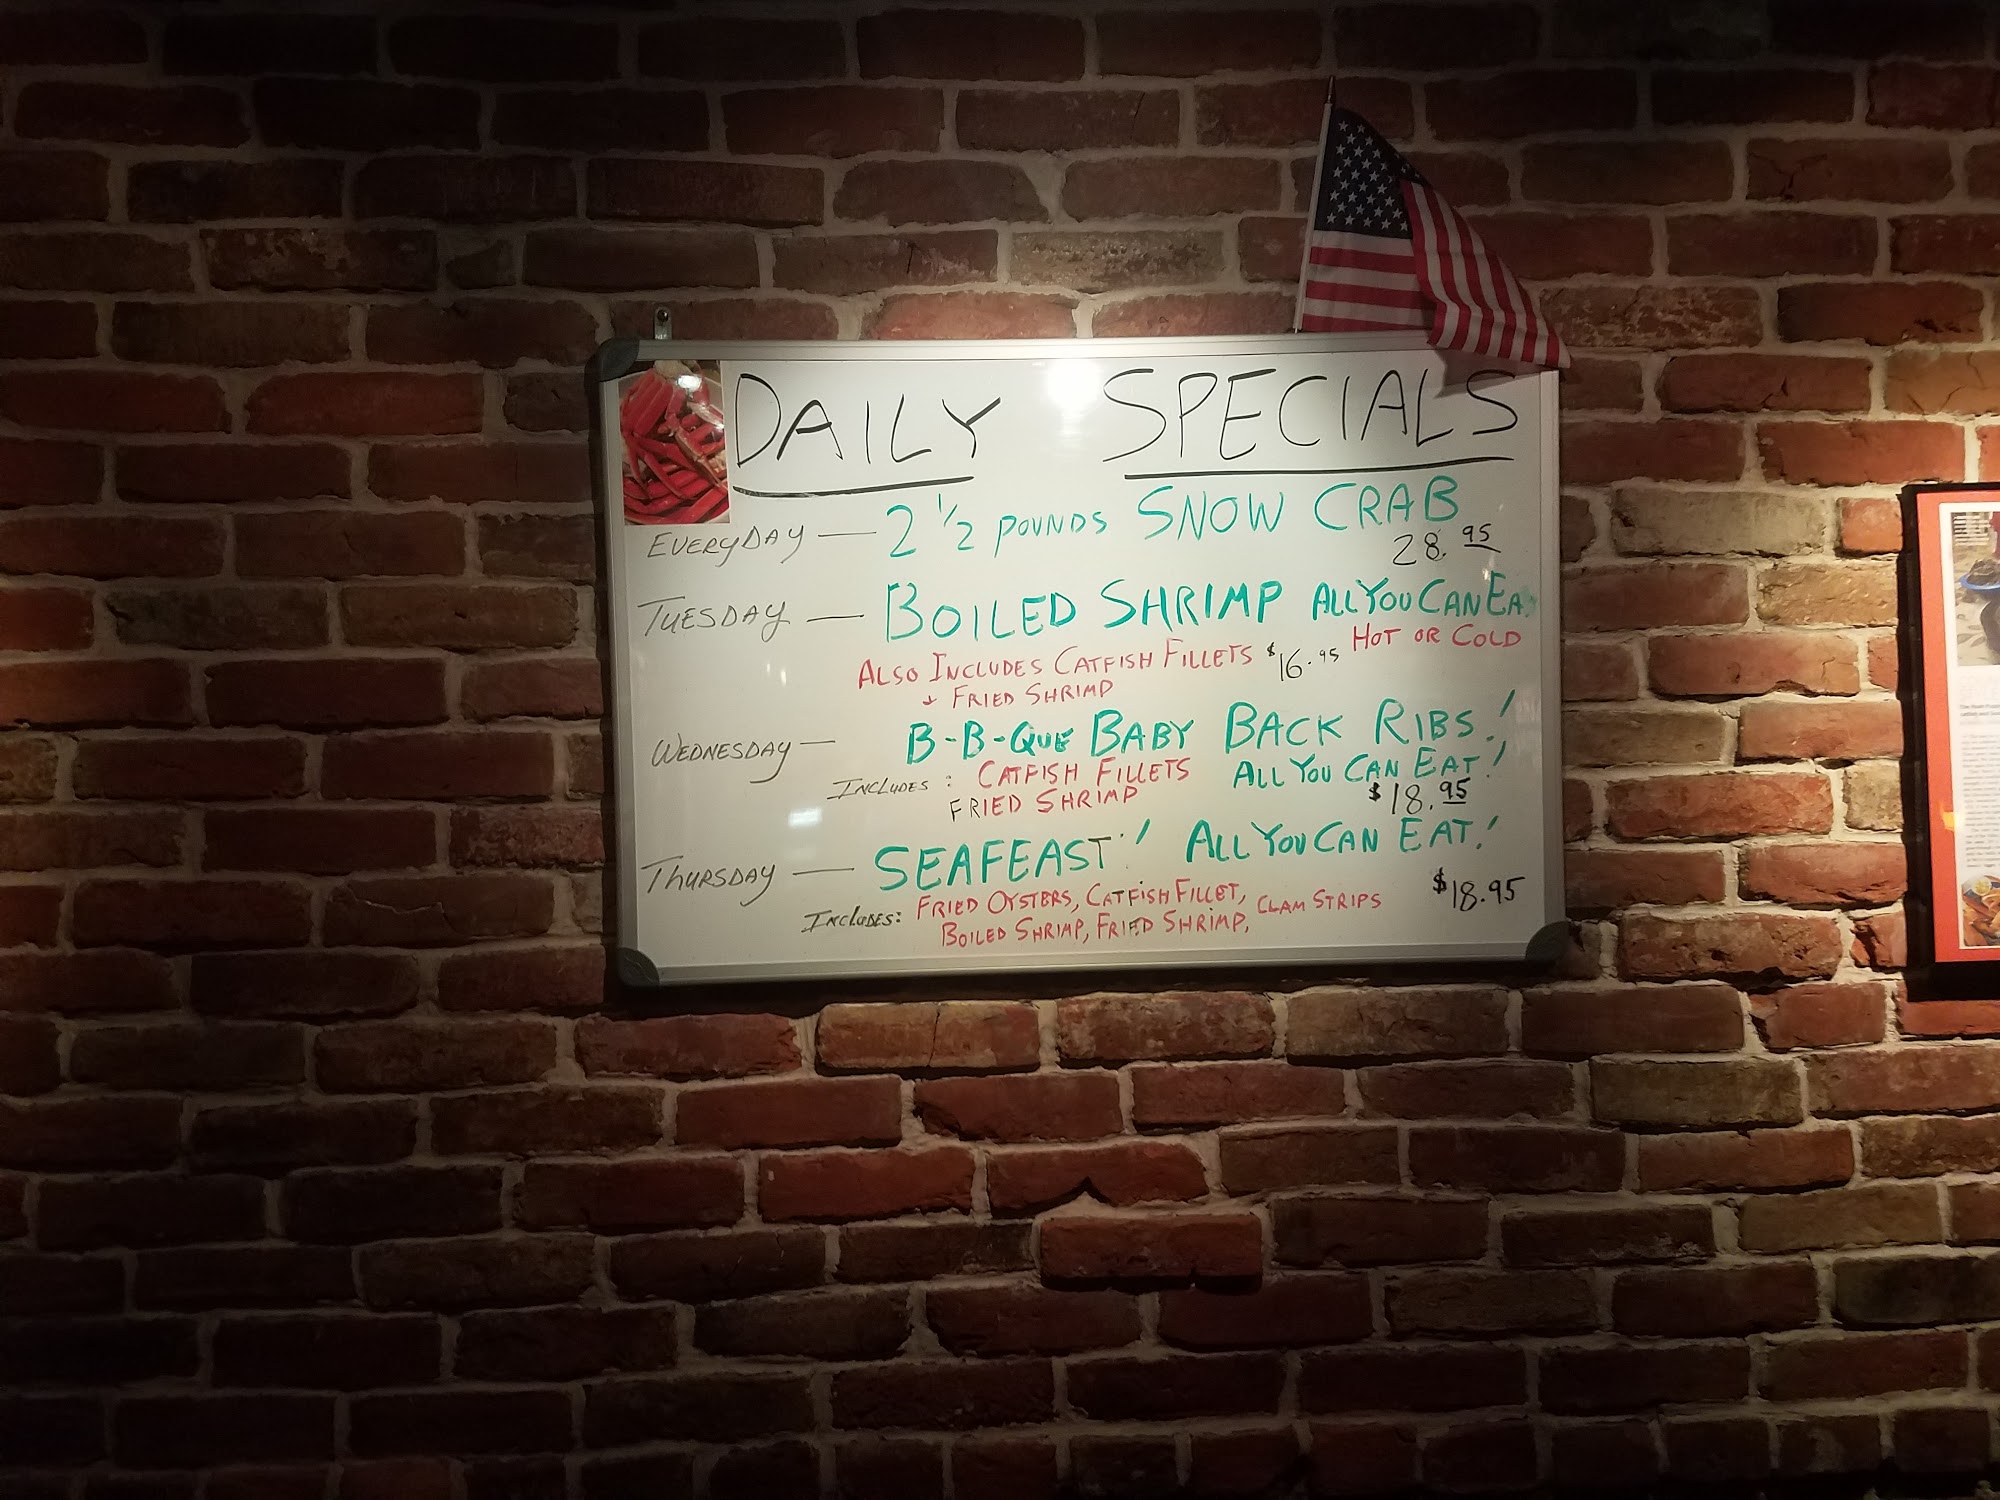 DAILY SPECIALS
EVERYDAY — 2 1/2 POUNDS SNOW CRAB
28.95
TUESDAY — BOILED SHRIMP ALL YOU CAN EA
ALSO INCLUDES CATFISH FILLETS $16.95 HOT OR COLD
+ FRIED SHRIMP
WEDNESDAY — B-B-QUE BABY BACK RIBS!
INCLUDES: CATFISH FILLETS ALL YOU CAN EAT!
FRIED SHRIMP $18.95
THURSDAY — SEAFEAST! ALL YOU CAN EAT!
INCLUDES: FRIED OYSTERS, CATFISH FILLET, CLAM STRIPS $18.95
BOILED SHRIMP, FRIED SHRIMP,